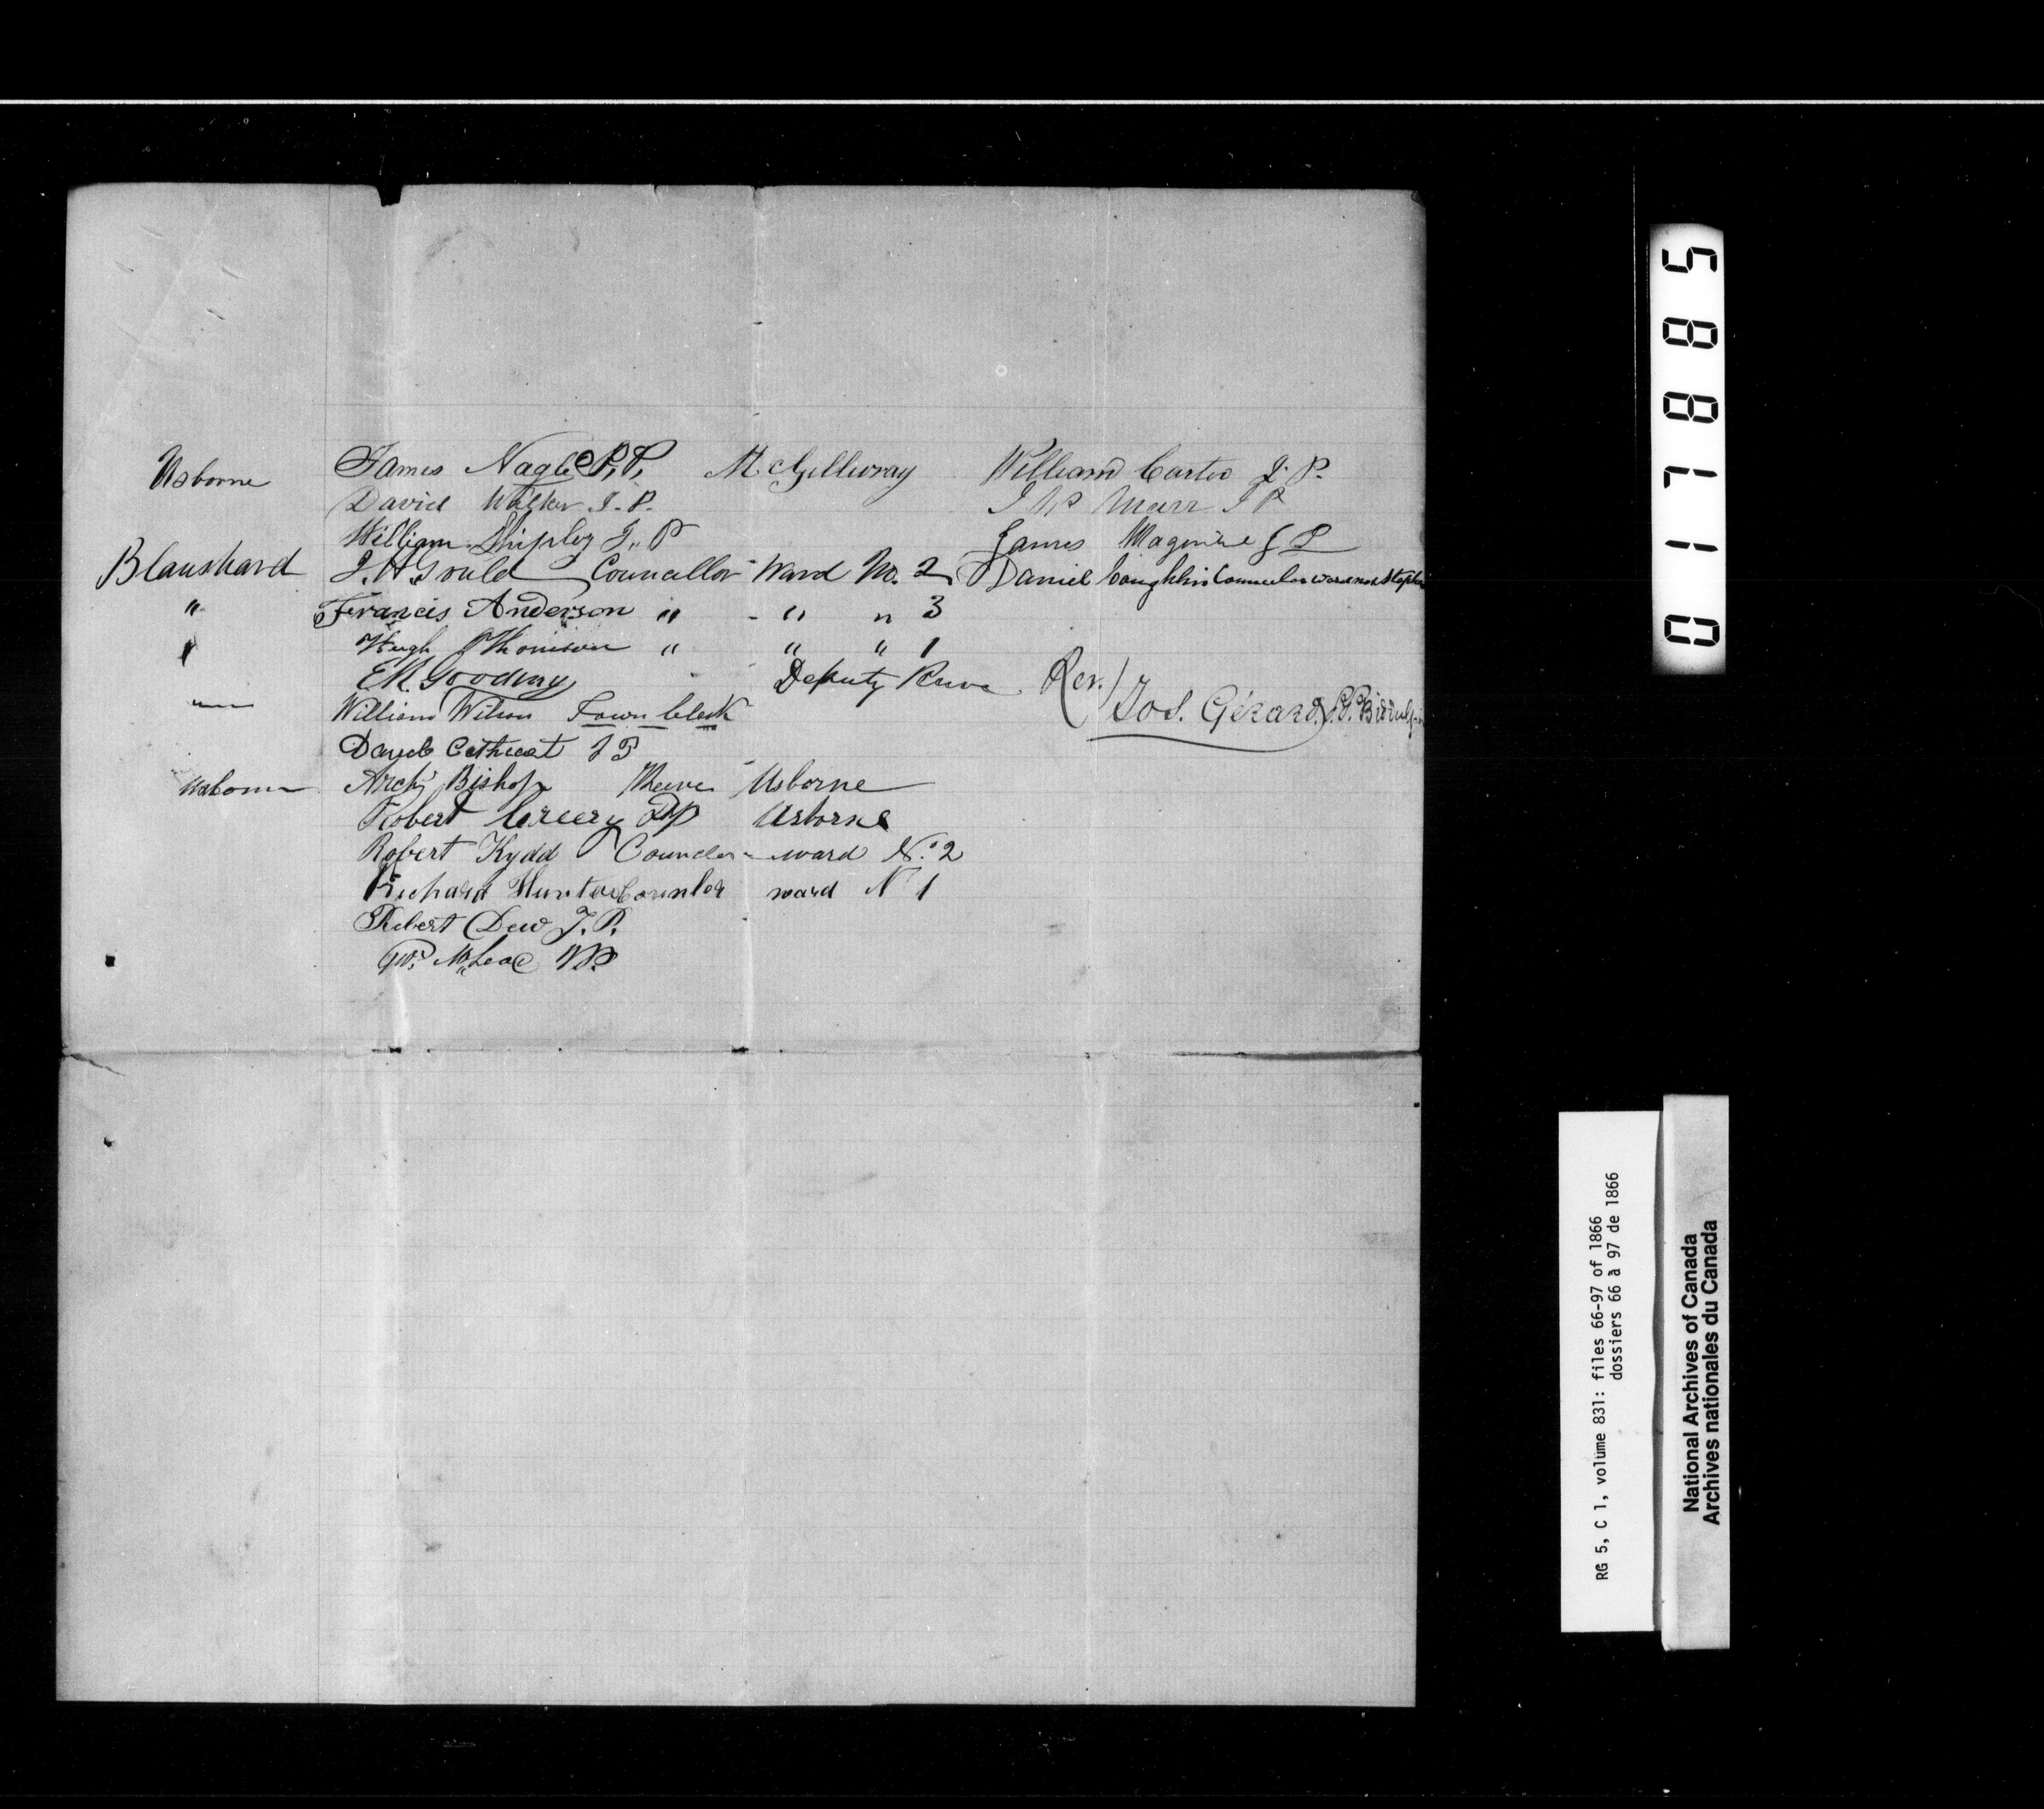 Usborne James Nagle P.P. McGillivray William Carter J.P.
David Walker J.P. J W Marr J P
William Shipley J. P James Maguire J P
Blanshard J. H. Gould Councillor Ward No. 2 Daniel Coughlin Councilor ward no Stephen
" Francis Anderson " " " 3
Hugh Thomison " " " 1
Deputy Reeve Rev. Jos. Gérard P.P. Biddulph
William Wilson Town Clerk
Cathcart J P
Usborne Arch Bishop Reeve Usborne
Robert Creery Usborne
Robert Kydd Councilor ward No. 2
Richard Hunter Counsler ward N 1
Robert Dew J. P.
McLeod
58710
RG 5, C 1, volume 831: files 66-97 of 1866
dossiers 66 à 97 de 1866
National Archives of Canada
Archives nationales du Canada